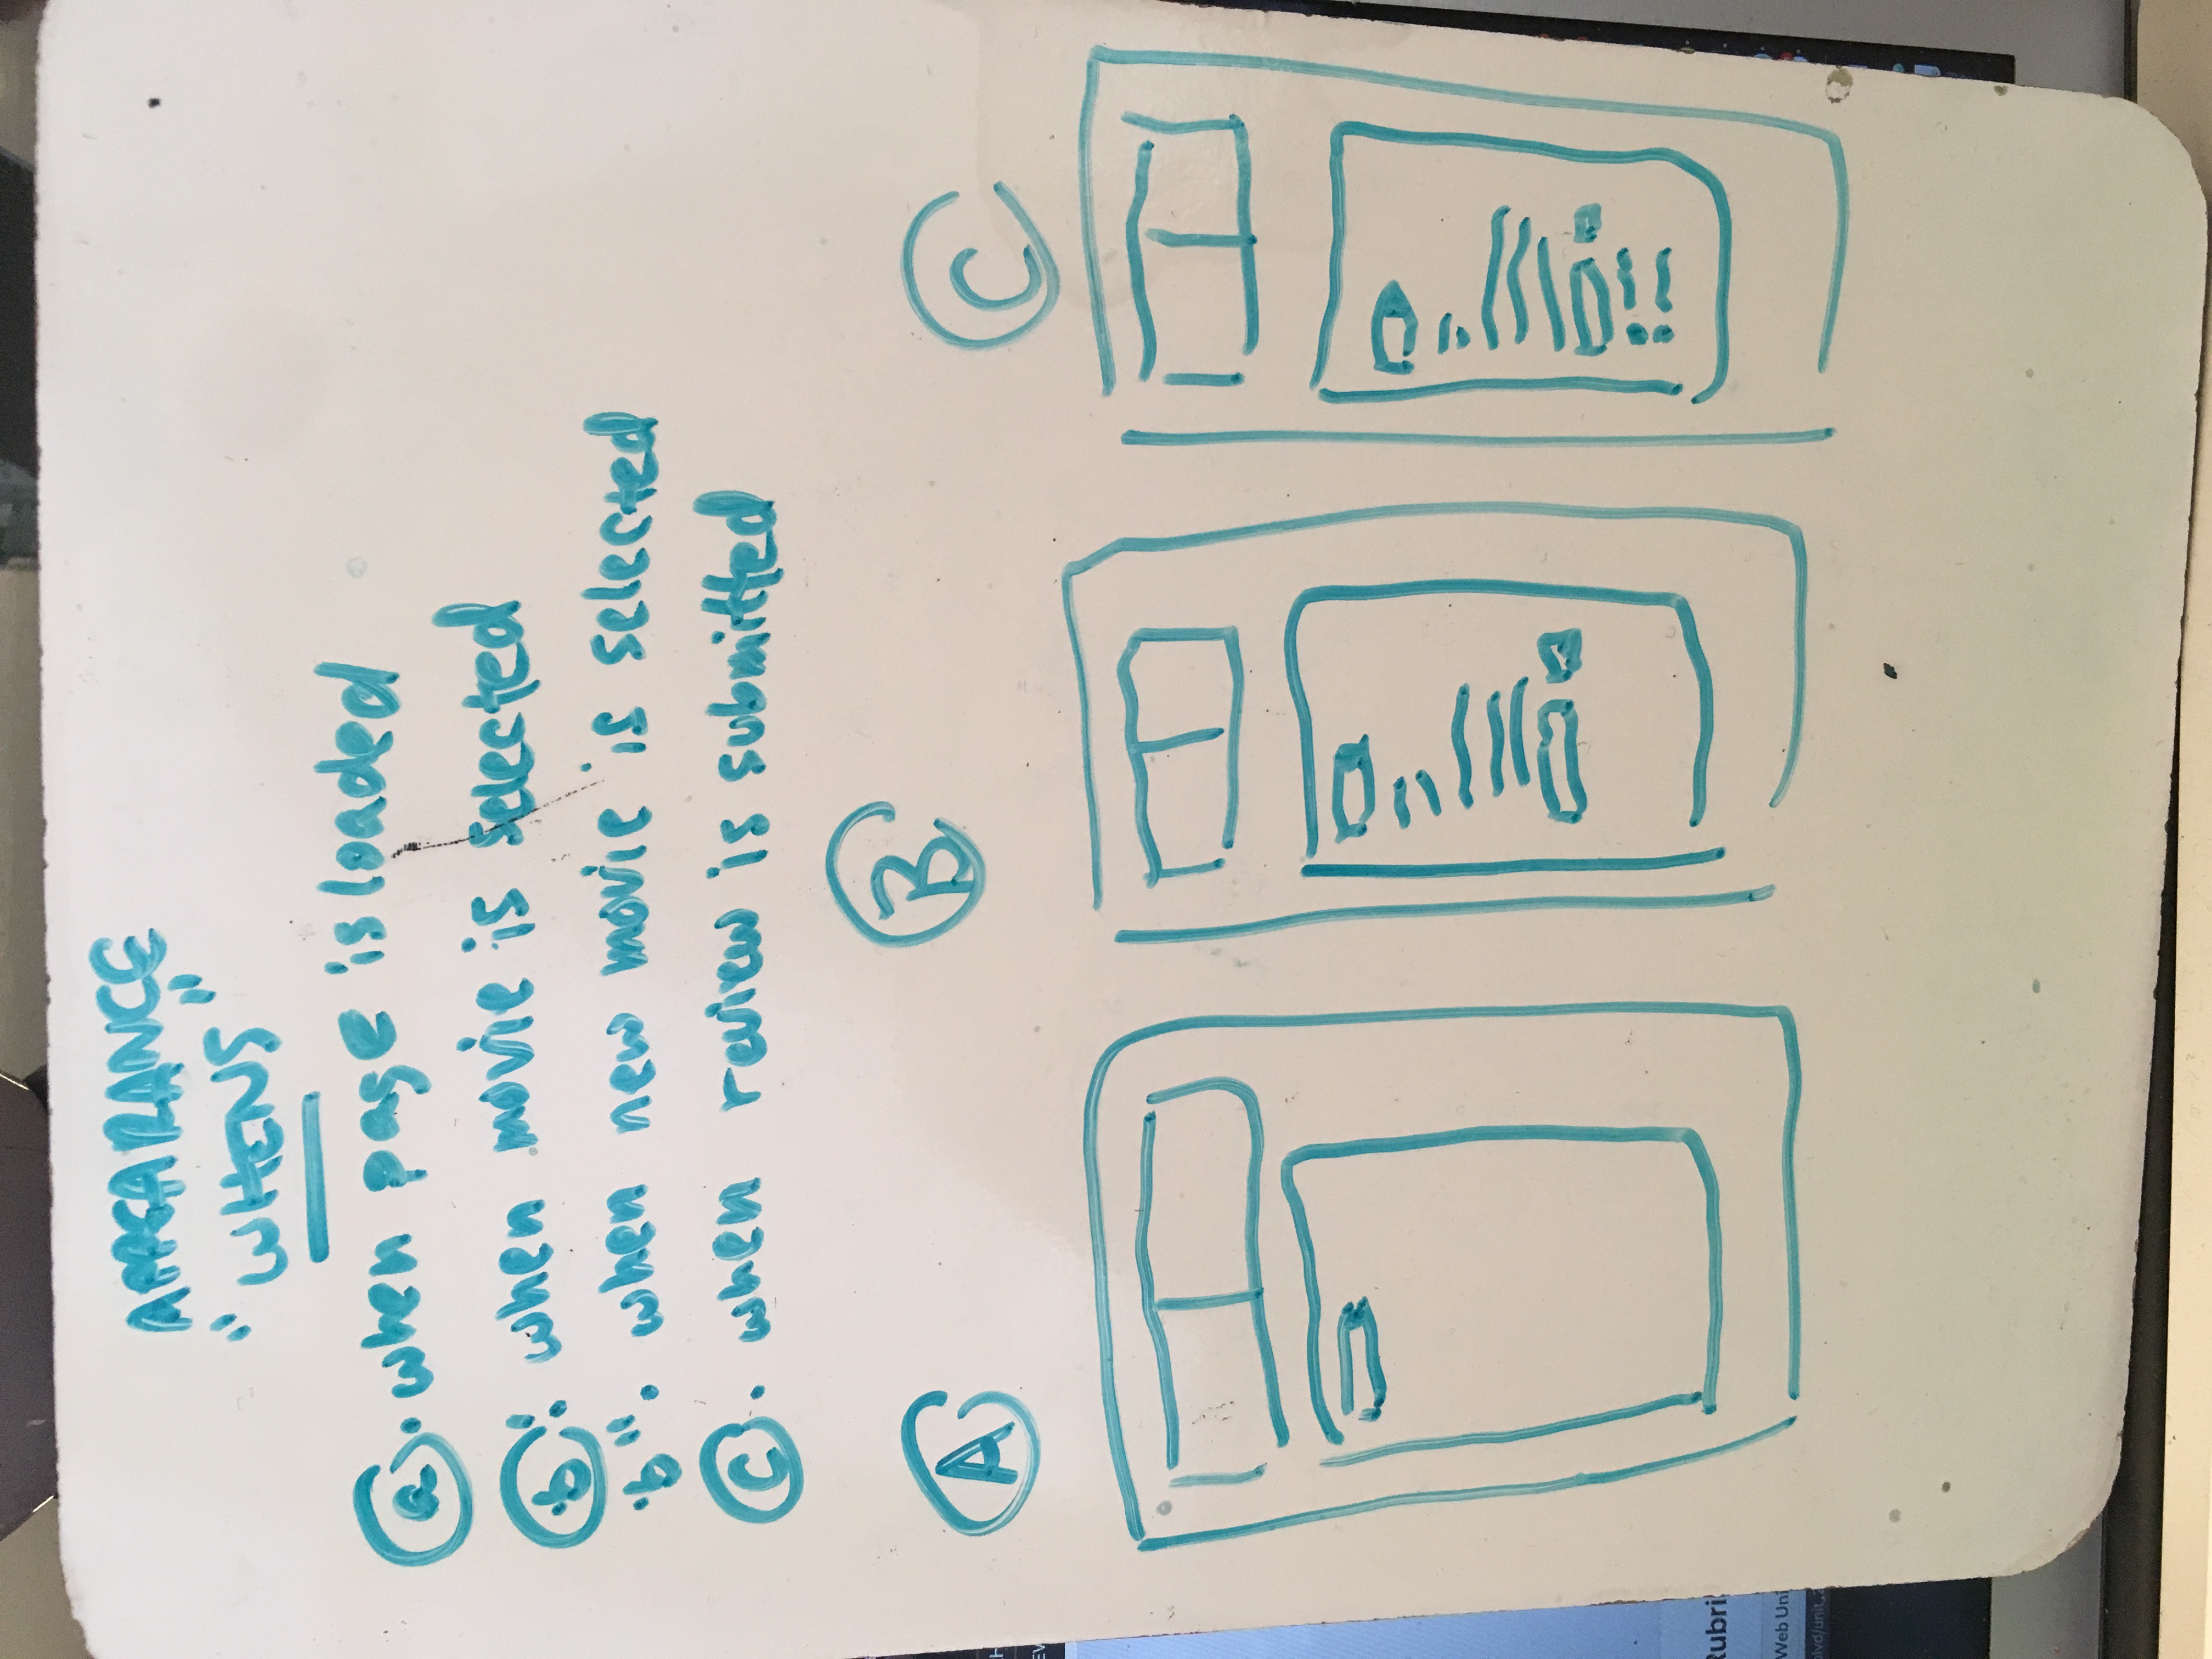 APPEARANCE
"WHENS"
a. when page is loaded
b: when movie is selected
b". when new movie is selected
c. when review is submitted
A
B
C
Rubri
Web Uni